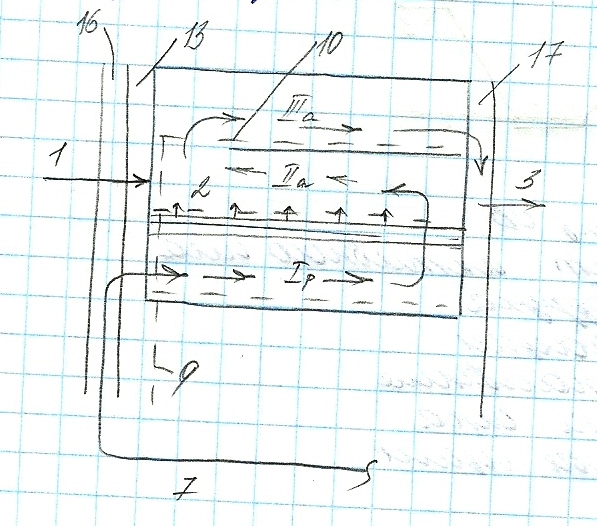 16 13 10 17
IIIa
1 2 IIa 3
Iр
9
7